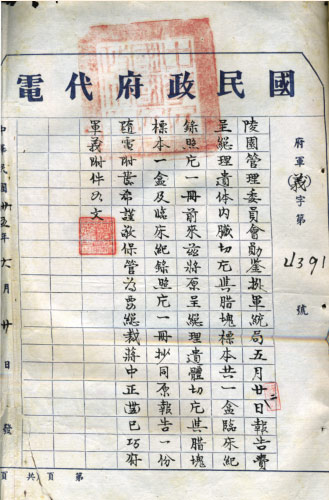 國民政府代電
府軍(義)字第4391號
陵園管理委員會勛鑒拠軍統局五月廿日報告賫
呈總理遺体內臓切片與腊塊標本共一盒臨床紀
錄照片一冊前來茲將原呈總理遺體切片與腊塊
標本一盒及臨床紀錄照片一冊抄同原報告一份
隨電附發希謹敬保管為要總裁蔣中正巳巧府
軍義附件如文
中華民國卅五年六月廿日 發
第 頁共 頁